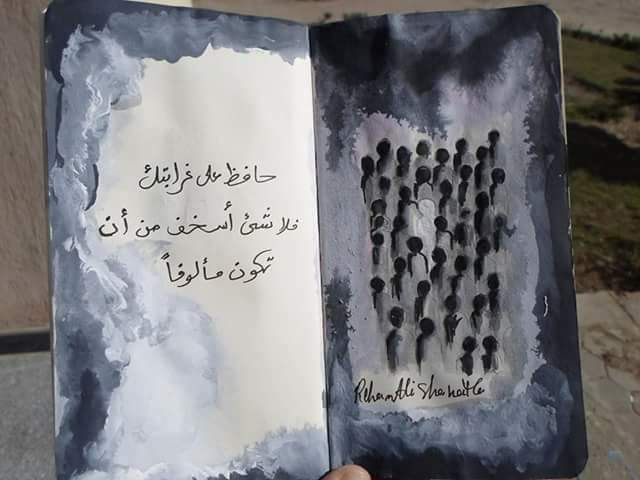 حافظ على غرابتك
فلا شئ أسخف من أن
تكون مألوفاً
Reham Ali